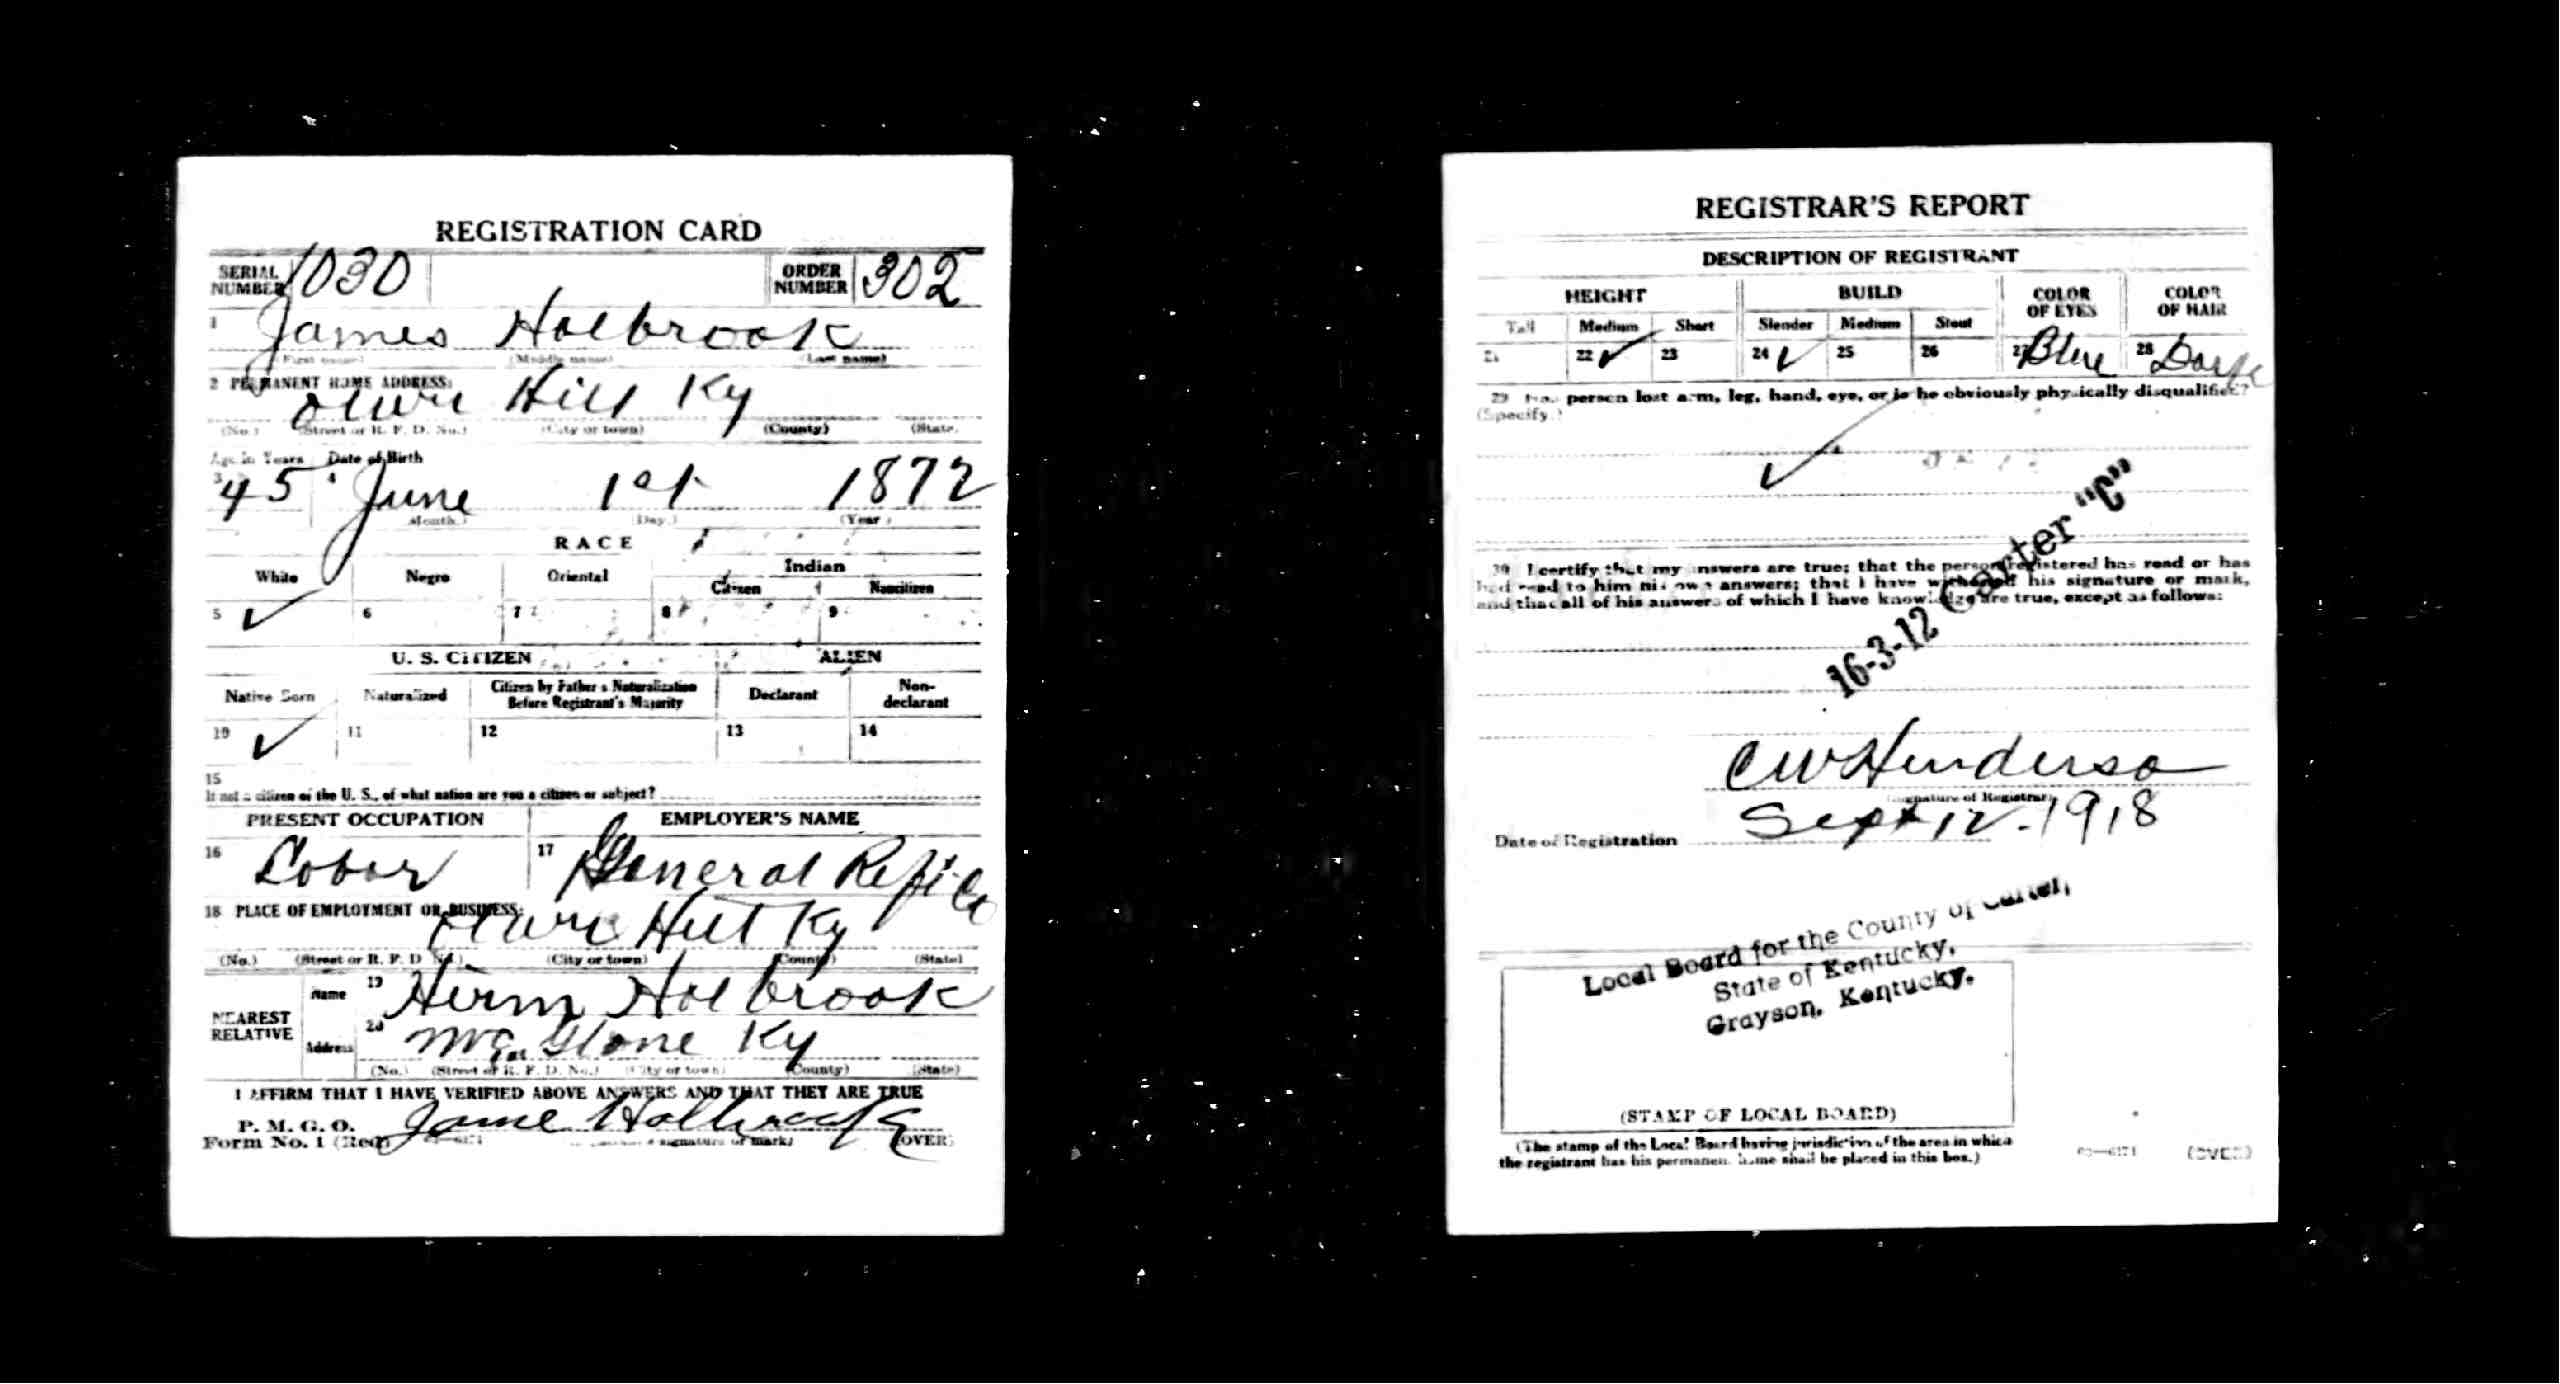 REGISTRATION CARD
SERIAL NUMBER 1030 ORDER NUMBER 302
1 James Holbrook
(First name) (Middle name) (Last name)
2 PERMANENT HOME ADDRESS:
Olive Hill Ky
(No.) (Street or R. F. D. No.) (City or town) (County) (State)
Age in Years Date of Birth
3 45 4 June 1st 1872
(Month.) (Day.) (Year.)
RACE
White Negro Oriental Indian
Citizen Noncitizen
5 ✓ 6 7 8 9
U. S. CITIZEN ALIEN
Native Born Naturalized Citizen by Father's Naturalization Before Registrant's Majority Declarant Non-declarant
10 ✓ 11 12 13 14
15
If not a citizen of the U. S., of what nation are you a citizen or subject?
PRESENT OCCUPATION EMPLOYER'S NAME
16 Lobor 17 General Refr. Co
18 PLACE OF EMPLOYMENT OR BUSINESS:
Olive Hill Ky
(No.) (Street or R. F. D. No.) (City or town) (County) (State)
NEAREST RELATIVE
Name 19 Hirm Holbrook
Address 20 McGlone Ky
(No.) (Street or R. F. D. No.) (City or town) (County) (State)
I AFFIRM THAT I HAVE VERIFIED ABOVE ANSWERS AND THAT THEY ARE TRUE
P. M. G. O.
Form No. 1 (Red) Jame Holbrook
signature or mark) (OVER)
REGISTRAR'S REPORT
DESCRIPTION OF REGISTRANT
HEIGHT BUILD COLOR OF EYES COLOR OF HAIR
Tall Medium Short Slender Medium Stout
21 22 ✓ 23 24 ✓ 25 26 27 Blue 28 Dark
29 Has person lost arm, leg, hand, eye, or is he obviously physically disqualified?
(Specify.)
✓
16-3-12 Carter "C"
30 I certify that my answers are true; that the person registered has read or has
had read to him his own answers; that I have witnessed his signature or mark,
and that all of his answers of which I have knowledge are true, except as follows:
C W Henderso
(Signature of Registrar)
Date of Registration Sept 12 - 1918
Local Board for the County of Carter,
State of Kentucky,
Grayson, Kentucky.
(STAMP OF LOCAL BOARD)
(The stamp of the Local Board having jurisdiction of the area in which
the registrant has his permanent home shall be placed in this box.)
(OVER)